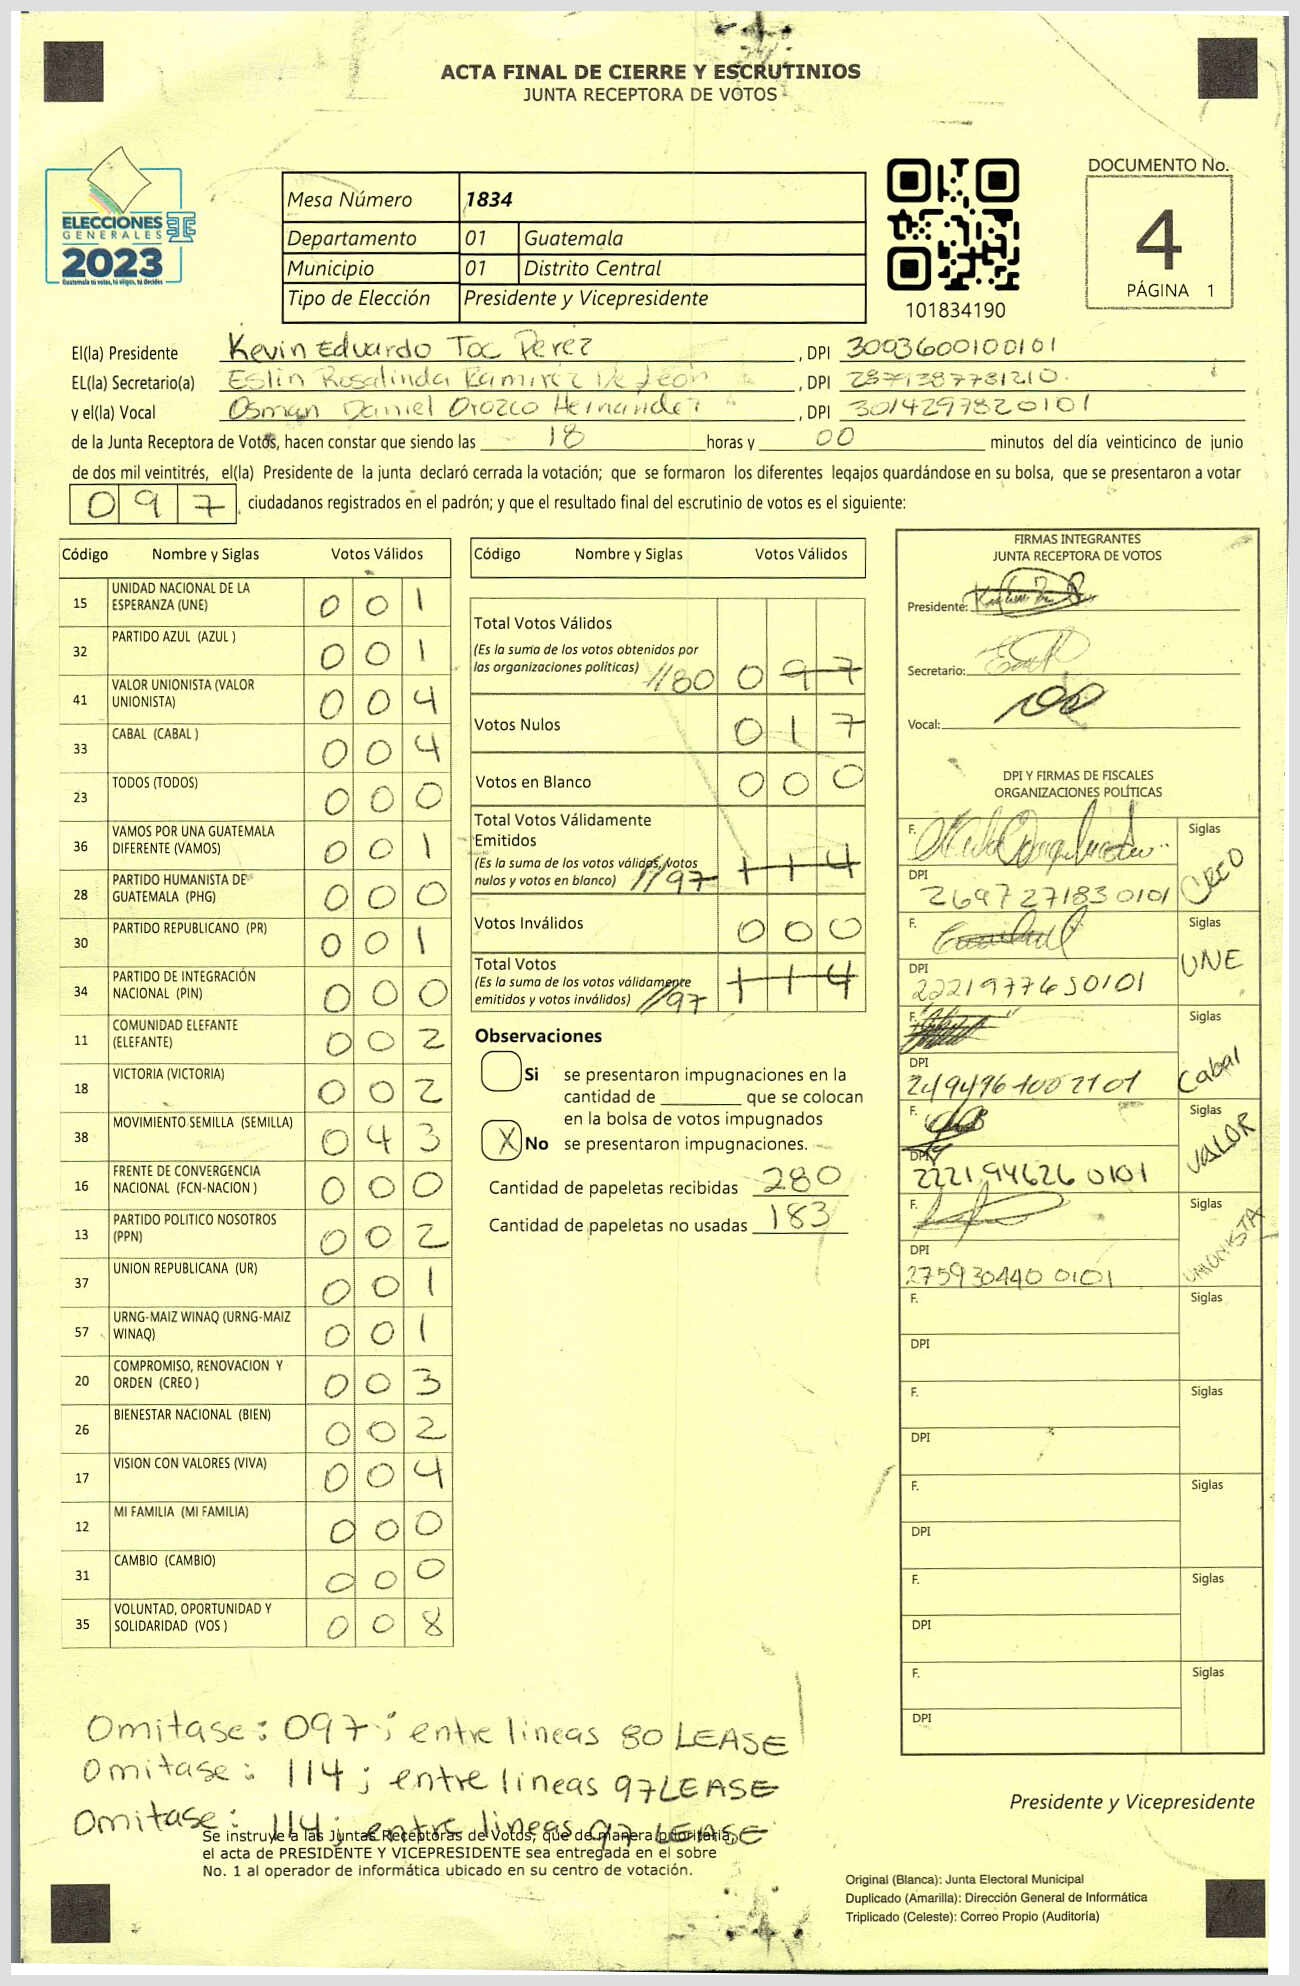 ACTA FINAL DE CIERRE Y ESCRUTINIOS
JUNTA RECEPTORA DE VOTOS
ELECCIONES
GENERALES
2023
Guatemala tu votas, tú eliges, tú decides
Mesa Número 1834
Departamento 01 Guatemala
Municipio 01 Distrito Central
Tipo de Elección Presidente y Vicepresidente
101834190
DOCUMENTO No.
4
PÁGINA 1
El(la) Presidente Kevin Eduardo Toc Perez, DPI 3003600100101
EL(la) Secretario(a) Eslin Rosalinda Ramirez De León, DPI
y el(la) Vocal Osman Daniel Orozco Hernández, DPI 3014297820101
de la Junta Receptora de Votos, hacen constar que siendo las 18 horas y 00 minutos del día veinticinco de junio
de dos mil veintitrés, el(la) Presidente de la junta declaró cerrada la votación; que se formaron los diferentes legajos quardándose en su bolsa, que se presentaron a votar
097 ciudadanos registrados en el padrón; y que el resultado final del escrutinio de votos es el siguiente:
Código Nombre y Siglas Votos Válidos
15 UNIDAD NACIONAL DE LA ESPERANZA (UNE) 0 0 1
32 PARTIDO AZUL (AZUL ) 0 0 1
41 VALOR UNIONISTA (VALOR UNIONISTA) 0 0 4
33 CABAL (CABAL ) 0 0 4
23 TODOS (TODOS) 0 0 0
36 VAMOS POR UNA GUATEMALA DIFERENTE (VAMOS) 0 0 1
28 PARTIDO HUMANISTA DE GUATEMALA (PHG) 0 0 0
30 PARTIDO REPUBLICANO (PR) 0 0 1
34 PARTIDO DE INTEGRACIÓN NACIONAL (PIN) 0 0 0
11 COMUNIDAD ELEFANTE (ELEFANTE) 0 0 2
18 VICTORIA (VICTORIA) 0 0 2
38 MOVIMIENTO SEMILLA (SEMILLA) 0 4 3
16 FRENTE DE CONVERGENCIA NACIONAL (FCN-NACION ) 0 0 0
13 PARTIDO POLITICO NOSOTROS (PPN) 0 0 2
37 UNION REPUBLICANA (UR) 0 0 1
57 URNG-MAIZ WINAQ (URNG-MAIZ WINAQ) 0 0 1
20 COMPROMISO, RENOVACION Y ORDEN (CREO ) 0 0 3
26 BIENESTAR NACIONAL (BIEN) 0 0 2
17 VISION CON VALORES (VIVA) 0 0 4
12 MI FAMILIA (MI FAMILIA) 0 0 0
31 CAMBIO (CAMBIO) 0 0 0
35 VOLUNTAD, OPORTUNIDAD Y SOLIDARIDAD (VOS ) 0 0 8
Código Nombre y Siglas Votos Válidos
Total Votos Válidos
(Es la suma de los votos obtenidos por
las organizaciones politicas) //80 0 9 7
Votos Nulos 0 1 7
Votos en Blanco 0 0 0
Total Votos Válidamente
Emitidos
(Es la suma de los votos válidos, votos
nulos y votos en blanco) //97 1 1 4
Votos Inválidos 0 0 0
Total Votos
(Es la suma de los votos válidamente
emitidos y votos inválidos) //97 1 1 4
Observaciones
Si se presentaron impugnaciones en la
cantidad de ________ que se colocan
en la bolsa de votos impugnados
X No se presentaron impugnaciones.
Cantidad de papeletas recibidas 280
Cantidad de papeletas no usadas 183
FIRMAS INTEGRANTES
JUNTA RECEPTORA DE VOTOS
Presidente:
Secretario:
Vocal:
DPI Y FIRMAS DE FISCALES
ORGANIZACIONES POLÍTICAS
F. Siglas CREO
DPI 2697271830101
F. Siglas UNE
DPI 2221977650101
F. Siglas Cabal
DPI 2494961002101
F. Siglas VALOR
DPI 2221946260101
F. Siglas UNIONISTA
DPI 2759304400101
F. Siglas
DPI
F. Siglas
DPI
F. Siglas
DPI
F. Siglas
DPI
F. Siglas
DPI
Omitase: 097; entre lineas 80 LEASE
Omitase: 114; entre lineas 97 LEASE
Omitase: 114; entre lineas 97 LEASE
Se instruye a las Juntas Receptoras de Votos, que de manera prioritaria,
el acta de PRESIDENTE Y VICEPRESIDENTE sea entregada en el sobre
No. 1 al operador de informática ubicado en su centro de votación.
Presidente y Vicepresidente
Original (Blanca): Junta Electoral Municipal
Duplicado (Amarilla): Dirección General de Informática
Triplicado (Celeste): Correo Propio (Auditoría)